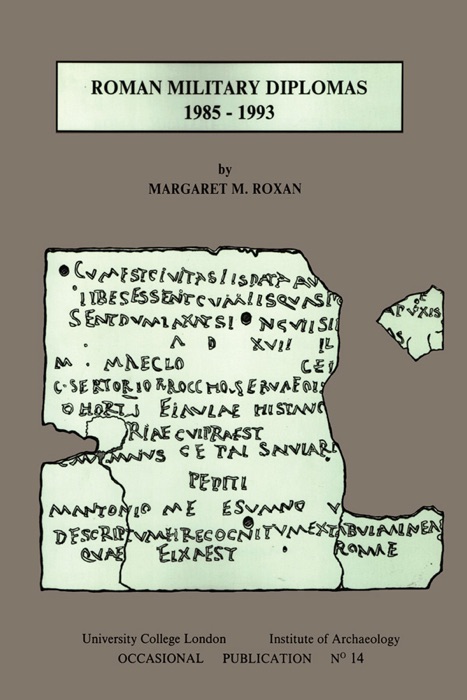 ROMAN MILITARY DIPLOMAS
1985 - 1993
by
MARGARET M. ROXAN
CVMESTCIVITASIISDATA AV
IIBESESSENTCVMIISQVASP
SENTDVMTAXATSI NGVLISII
A D XVII IL
M . MAECLO CEI
C. SERTORIO SERVAEOIS
COHORT EIAVLAE HISTANO
RIAE CVIPRAEST
PEDITI
MANTONIO ME ESVMNO V
DESCRIPTVMETRECOGNITVMEXTABVLAAENEA
QVAE FIXAEST ROMAE
University College London Institute of Archaeology
OCCASIONAL PUBLICATION Nº 14